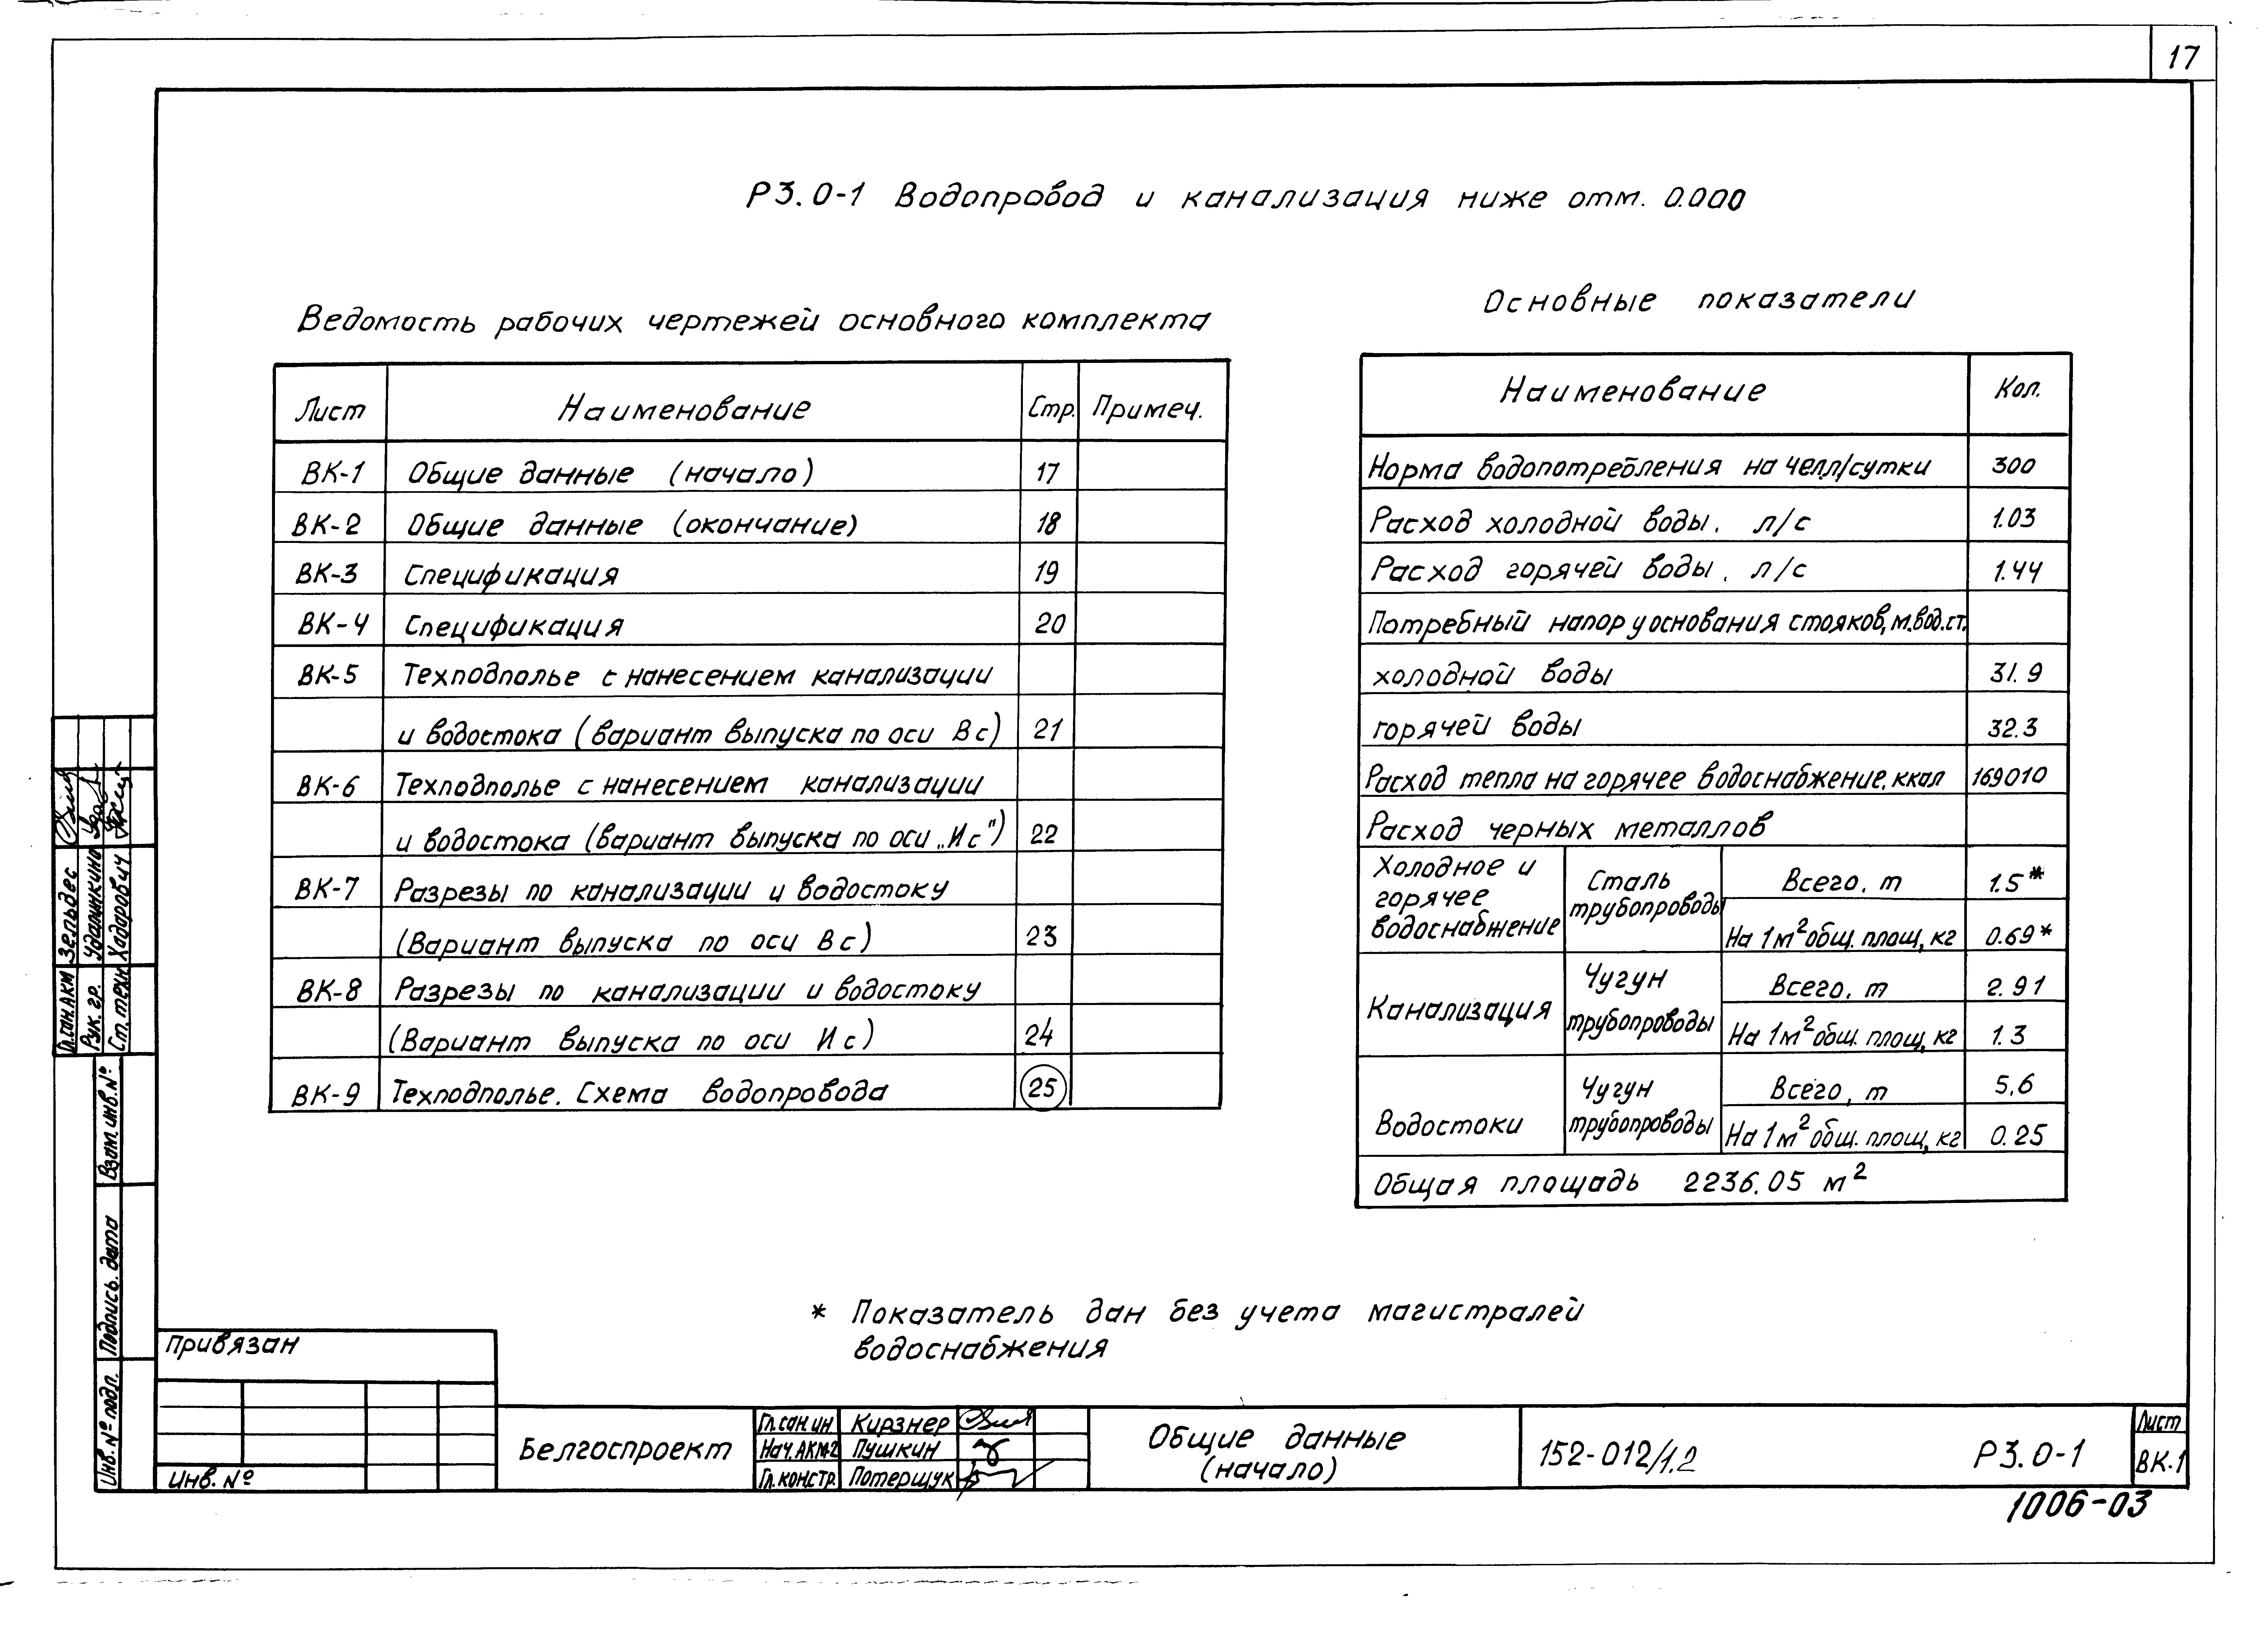 17
Р3.0-1 Водопровод и канализация ниже отм. 0.000
Ведомость рабочих чертежей основного комплекта
Лист Наименование Стр. Примеч.
ВК-1 Общие данные (начало) 17
ВК-2 Общие данные (окончание) 18
ВК-3 Спецификация 19
ВК-4 Спецификация 20
ВК-5 Техподполье с нанесением канализации
и водостока (вариант выпуска по оси Вс) 21
ВК-6 Техподполье с нанесением канализации
и водостока (вариант выпуска по оси „Ис") 22
ВК-7 Разрезы по канализации и водостоку
(Вариант выпуска по оси Вс) 23
ВК-8 Разрезы по канализации и водостоку
(Вариант выпуска по оси Ис) 24
ВК-9 Техподполье. Схема водопровода 25
Основные показатели
Наименование Кол.
Норма водопотребления на чел л/сутки 300
Расход холодной воды, л/с 1.03
Расход горячей воды, л/с 1.44
Потребный напор у основания стояков, м.вод.ст.
холодной воды 31.9
горячей воды 32.3
Расход тепла на горячее водоснабжение, ккал 169010
Расход черных металлов
Холодное и
горячее
водоснабжение
Сталь
трубопроводы
Всего, т 1.5*
На 1м² общ. площ, кг 0.69*
Канализация
Чугун
трубопроводы
Всего, т 2.91
На 1м² общ. площ, кг 1.3
Водостоки
Чугун
трубопроводы
Всего, т 5,6
На 1м² общ. площ, кг 0.25
Общая площадь 2236.05 м²
* Показатель дан без учета магистралей
водоснабжения
Гл.сан.АКМ Зельдес
Рук. гр.
Ст. техн Хадарович
Взам. инв. №
Подпись. дата
Инв. № подл.
Привязан
Инв. №
Белгоспроект
Гл.сан.ин Кирзнер
Нач.АКМ2 Пушкин
Гл.констр. Потерщук
Общие данные
(начало)
152-012/1.2
Р3.0-1
Лист
ВК-1
1006-03